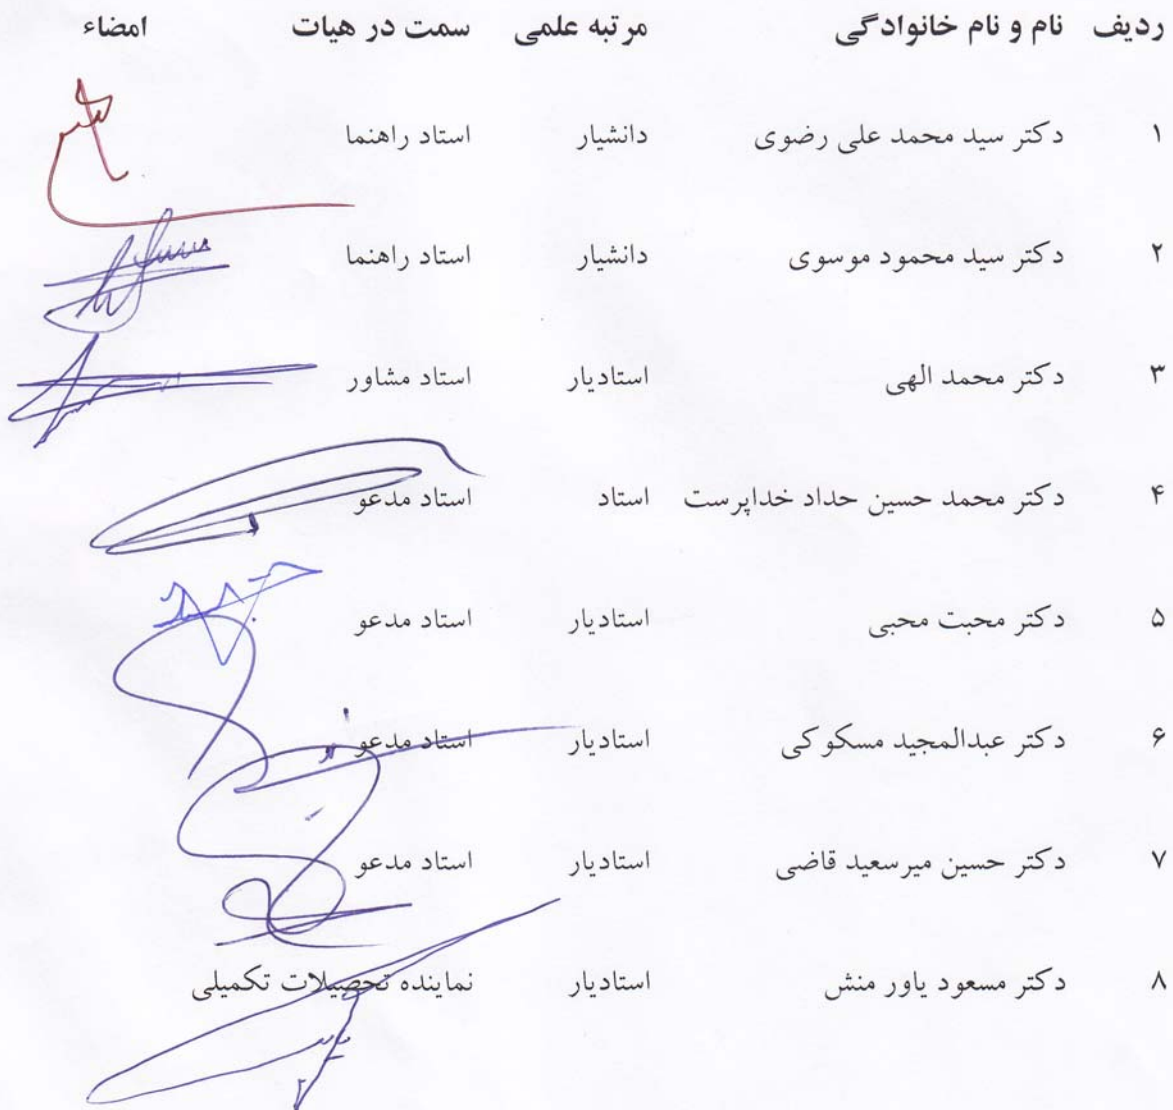 ردیف نام و نام خانوادگی مرتبه علمی سمت در هیات امضاء
۱ دکتر سید محمد علی رضوی دانشیار استاد راهنما
۲ دکتر سید محمود موسوی دانشیار استاد راهنما
۳ دکتر محمد الهی استادیار استاد مشاور
۴ دکتر محمد حسین حداد خداپرست استاد استاد مدعو
۵ دکتر محبت محبی استادیار استاد مدعو
۶ دکتر عبدالمجید مسکوکی استادیار استاد مدعو
۷ دکتر حسین میرسعید قاضی استادیار استاد مدعو
۸ دکتر مسعود یاور منش استادیار نماینده تحصیلات تکمیلی